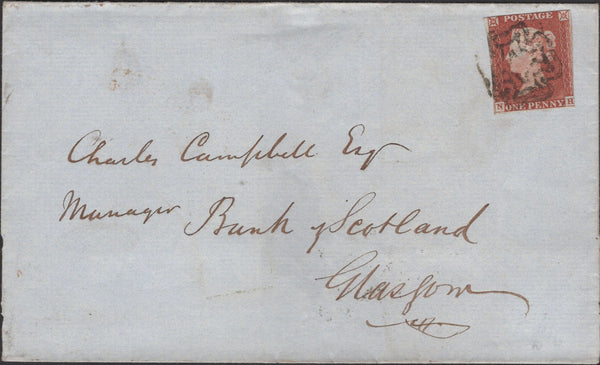 POSTAGE
ONE PENNY
Charles Campbell Esq
Manager Bank of Scotland
Glasgow